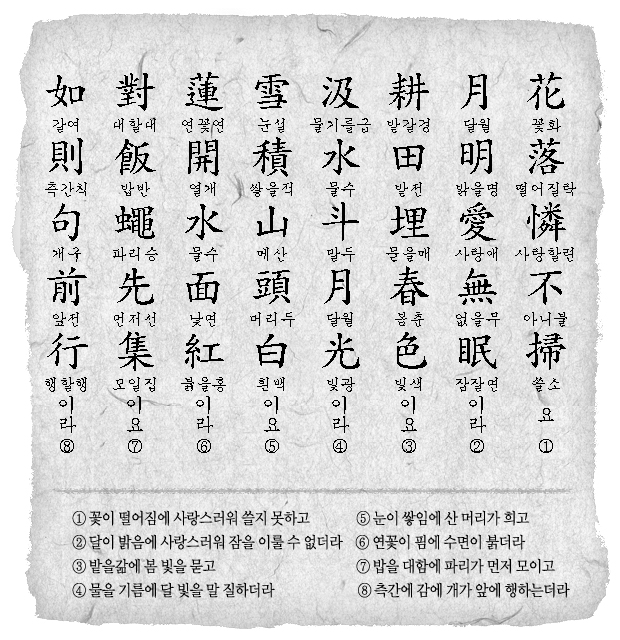 花 꽃화 落 떨어질락 憐 사랑할련 不 아니불 掃 쓸소 요 ①
月 달월 明 밝을명 愛 사랑애 無 없을무 眠 잠잘면 이라 ②
耕 밭갈경 田 밭전 埋 묻을매 春 봄춘 色 빛색 이요 ③
汲 물기를급 水 물수 斗 말두 月 달월 光 빛광 이라 ④
雪 눈설 積 쌓을적 山 메산 頭 머리두 白 흰백 이요 ⑤
蓮 연꽃연 開 열개 水 물수 面 낯면 紅 붉을홍 이라 ⑥
對 대할대 飯 밥반 蠅 파리승 先 먼저선 集 모일집 이요 ⑦
如 갈여 則 측간칙 句 개구 前 앞전 行 행할행 이라 ⑧
① 꽃이 떨어짐에 사랑스러워 쓸지 못하고
② 달이 밝음에 사랑스러워 잠을 이룰 수 없더라
③ 밭을갊에 봄 빛을 묻고
④ 물을 기름에 달 빛을 말 질하더라
⑤ 눈이 쌓임에 산 머리가 희고
⑥ 연꽃이 핌에 수면이 붉더라
⑦ 밥을 대함에 파리가 먼저 모이고
⑧ 측간에 감에 개가 앞에 행하는더라